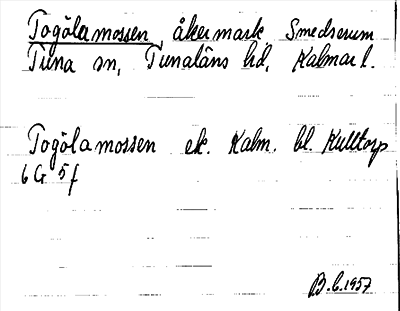 Togölamossen, åkermark, Smedserum
Tuna sn, Tunaläns hd, Kalmar l.
Togölamossen ek. Kalm. bl. Kulltorp
6 G 5 f
B.C.1957